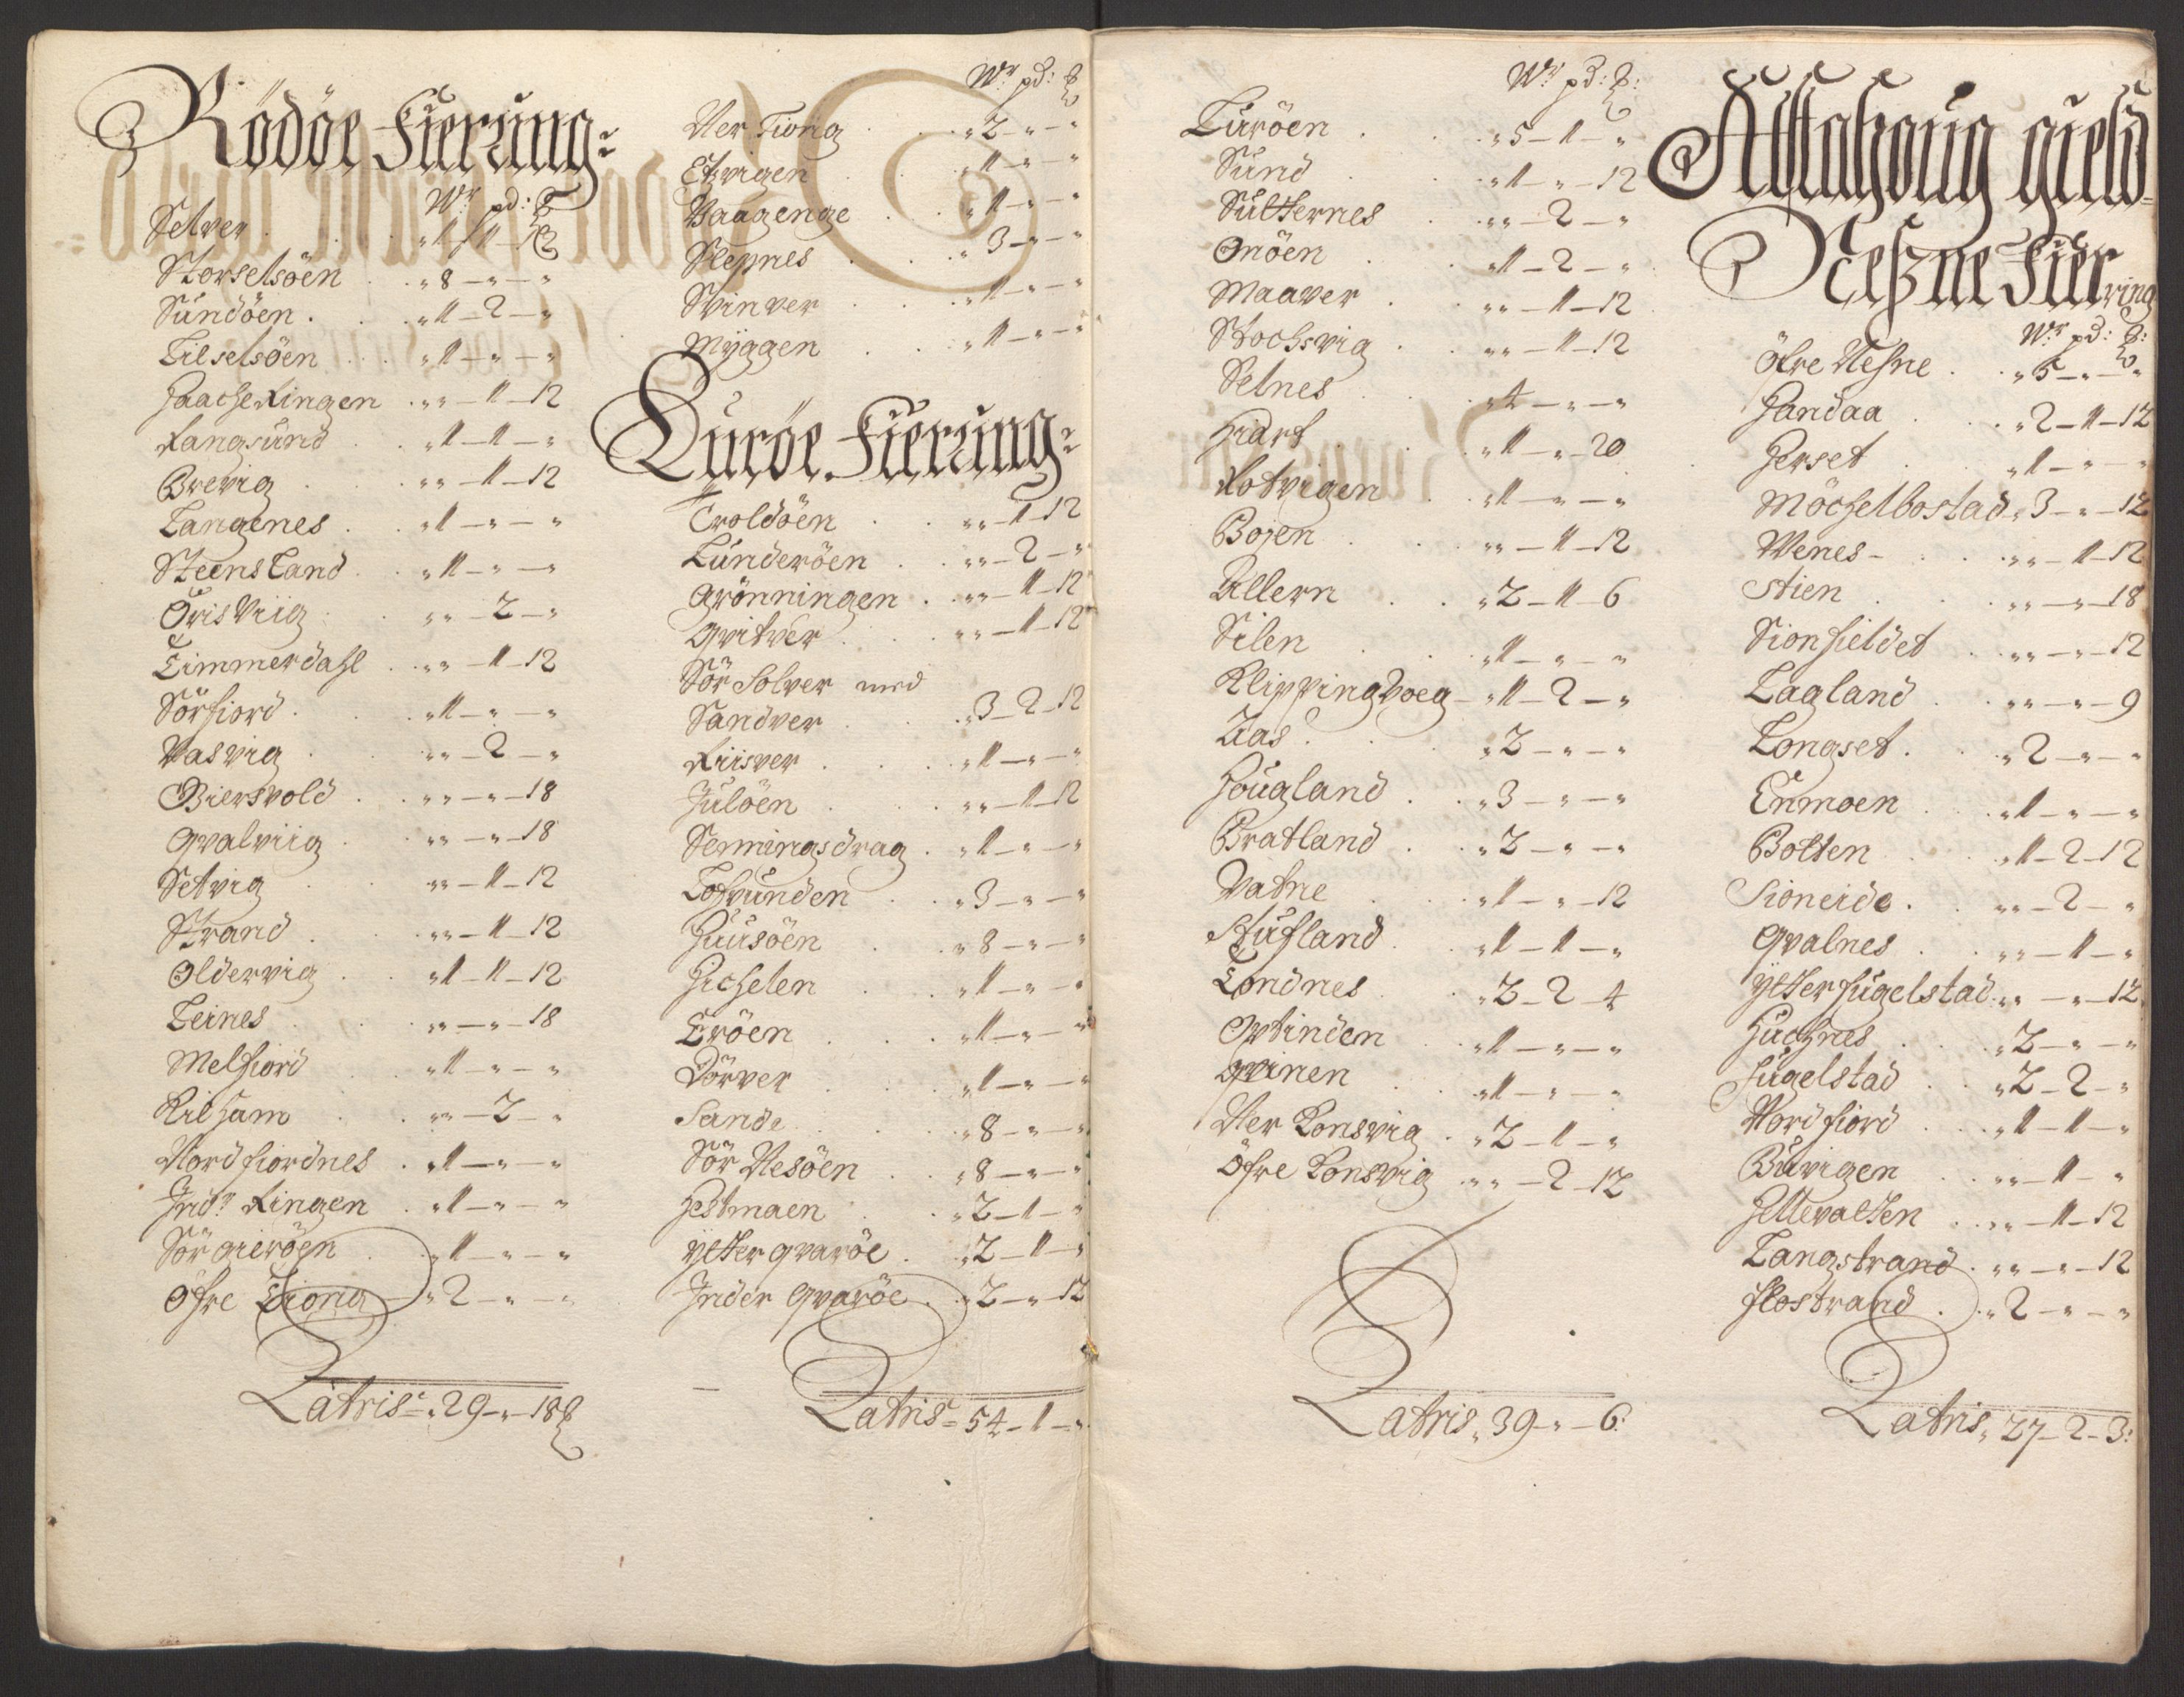 Rödöe Fierüng:
Wr pd: ℔
Selver . . „1-1-12
Storselsöen . „8-„-„
Sündöen . . „1-2-„
Lilselsöen . „1-„-„
Haacheringen . „„-1-12
Rangsünd . „1-1-„
Brevig . . „„-1-12
Langenes . . „1-„-„
Steensland . „1-„-„
Öris Viig . „„-2-„
Timmerdahl . „„-1-12
Sörfiord . . „1-„-„
Vasvig . . „„-2-„
Biersvold . „„-„-18
Qvalviig . . „„-„-18
Setvig . . „„-1-12
Strand . . „„-1-12
Oldervig . . „1-1-12
Leines . . „„-„-18
Melfiord . . „1-„-„
Kilham . . „„-2-„
Nordfiordnes . „1-„-„
Indr Ringen . „1-„-„
Sör gieröen . „1-„-„
Öfre Tiong - „2-„-„
Latris: „29-„-18 ℔
Wr pd: ℔
Ner Tiong . „2-„-„
Etvigen . . „1-„-„
Vaagenge . . „1-„-„
Slepnes . . „3-„-„
Svinver . . „1-„-„
Myggen . . „1-„-„
Luröe Fierüng:
Troldöen . . „„-1-12
Lünderöen . . „„-2-„
Grönningen . „„-1-12
Qvitver . . „„-1-12
Sör Solver med
Sandver . . „3-2-12
Riisver . . „1-„-„
Jülöen . . „„-1-12
Senningsdrag . „1-„-„
Lofvünden . „3-„-„
Huusöen . . „8-„-„
Hichelen . . „1-„-„
Eröen . . . „1-„-„
Dörver . . „1-„-„
Sande . . „8-„-„
Sör Nesöen . „8-„-„
Hestmaen . „2-1-„
Ytter qvaröe . „2-1-„
Inder Qvaröe . „2-„-12
Latris: 54-1-„
Wr pd: ℔:
Luröen . . „5-1-„
Sünd . . „1-„-12
Sülternes . „„-2-„
Onöen . . „1-2-„
Maaver . . „„-1-12
Stochsvig . „„-1-12
Selnes . . „4-„-„
Hiart . . „1-„-20
Kotvigen . „1-„-„
Bojen . . „„-1-12
Allern . . „2-1-6
Silen . . „1-„-„
Klippingvoeg - „1-2-„
Aas . . „2-„-„
Hougland . . „3-„-„
Bratland . . „2-„-„
Vatne . . „1-„-12
Stufland . . „1-1-„
Tondnes . . „2-2-4
Qvtinden . „1-„-„
Qvinen . . „1-„-„
Ner Konsvig . „2-1-„
Öfre Konsvig „„-2-12
Latris „39-„-6:
Alstahoug gield
Neszne Fierring
Wr pd: ℔:
Öfre Nesne . „5-„-„
Handaa . . „2-1-12
Herset . . „1-„-„
Möchelbostad „3-„-12
Wenes- . . „„-1-12
Stien . . „„-„-18
Sionfieldet . „„-„-12
Lagland . . „„-„-9
Longset . . „2-„-„
Enmoen . . „1-„-„
Bolten . . „1-2-12
Sioneide . „„-2-„
Qvalnes . . „„-1-„
Ytterfügelstad „„-„-12
Hüchnes . . „2-„-„
Fügelstad . „2-2-„
Nordfiord . „1-1-„
Büvigen . . „„-1-„
Hellevalten . „„-1-12
Langstrand . „„-„-12
Flostrand . „2-„-„
Latris „27-2-3: